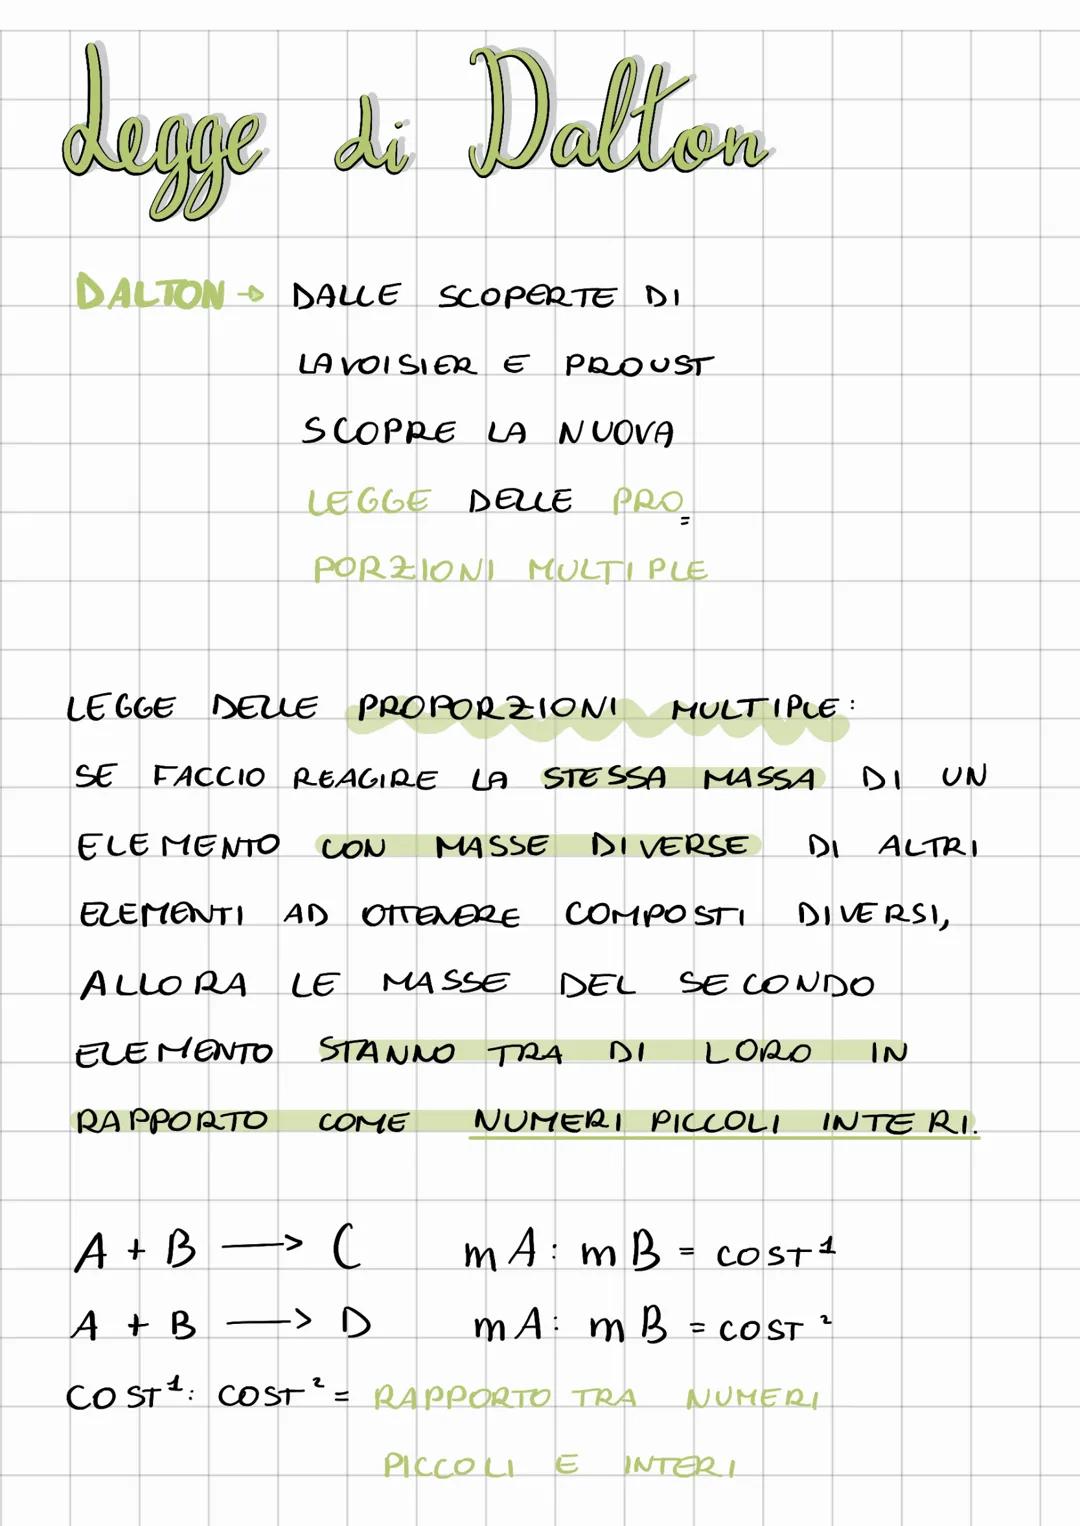 Legge di Dalton
DALTON → DALLE SCOPERTE DI
LAVOISIER E PROUST
SCOPRE LA NUOVA
LEGGE DELLE PRO=
PORZIONI MULTIPLE
LEGGE DELLE PROPORZIONI MULTIPLE:
SE FACCIO REAGIRE LA STESSA MASSA DI UN
ELEMENTO CON MASSE DIVERSE DI ALTRI
ELEMENTI AD OTTENERE COMPOSTI DIVERSI,
ALLORA LE MASSE DEL SECONDO
ELEMENTO STANNO TRA DI LORO IN
RAPPORTO COME NUMERI PICCOLI INTERI.
A + B —> C mA: mB = COST¹
A + B —> D mA: mB = COST²
COST¹: COST² = RAPPORTO TRA NUMERI
PICCOLI E INTERI